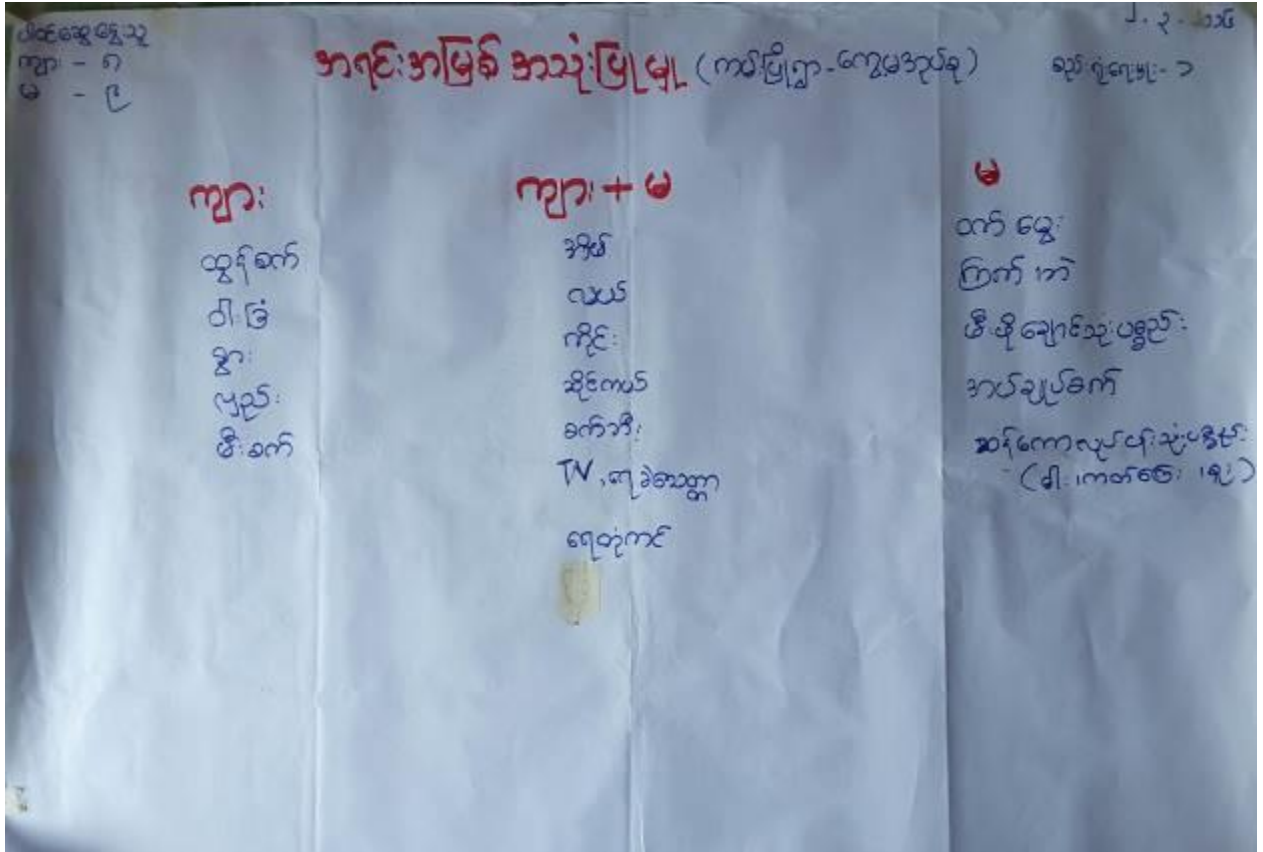 ပါဝင်ဆွေးနွေးသူ
ကျား - ၈
မ - ၉
၂ . ၃ . ၁၁
အရင်းအမြစ် အသုံးပြုမှု (ကမ်ပြိုရွာ - ကွေ့မအုပ်စု)
စည်းရုံးရေးမှူး - ၁
ကျား
ထွန်စက်
ဝါးခြံ
နွား
လှည်း
မီးစက်
ကျား + မ
အိမ်
လယ်
ကိုင်း
ဆိုင်ကယ်
စက်ဘီး
TV , ရေခဲသေတ္တာ
ရေတုံကင်
မ
ဝက် မွေး
ကြက် ၊ဘဲ
မီးဖိုချောင်သုံးပစ္စည်း
အပ်ချုပ်စက်
ဆန်ကောလုပ်ငန်းသုံးပစ္စည်း
(ဓါး ၊ကတ်ကြေး ၊စူး)